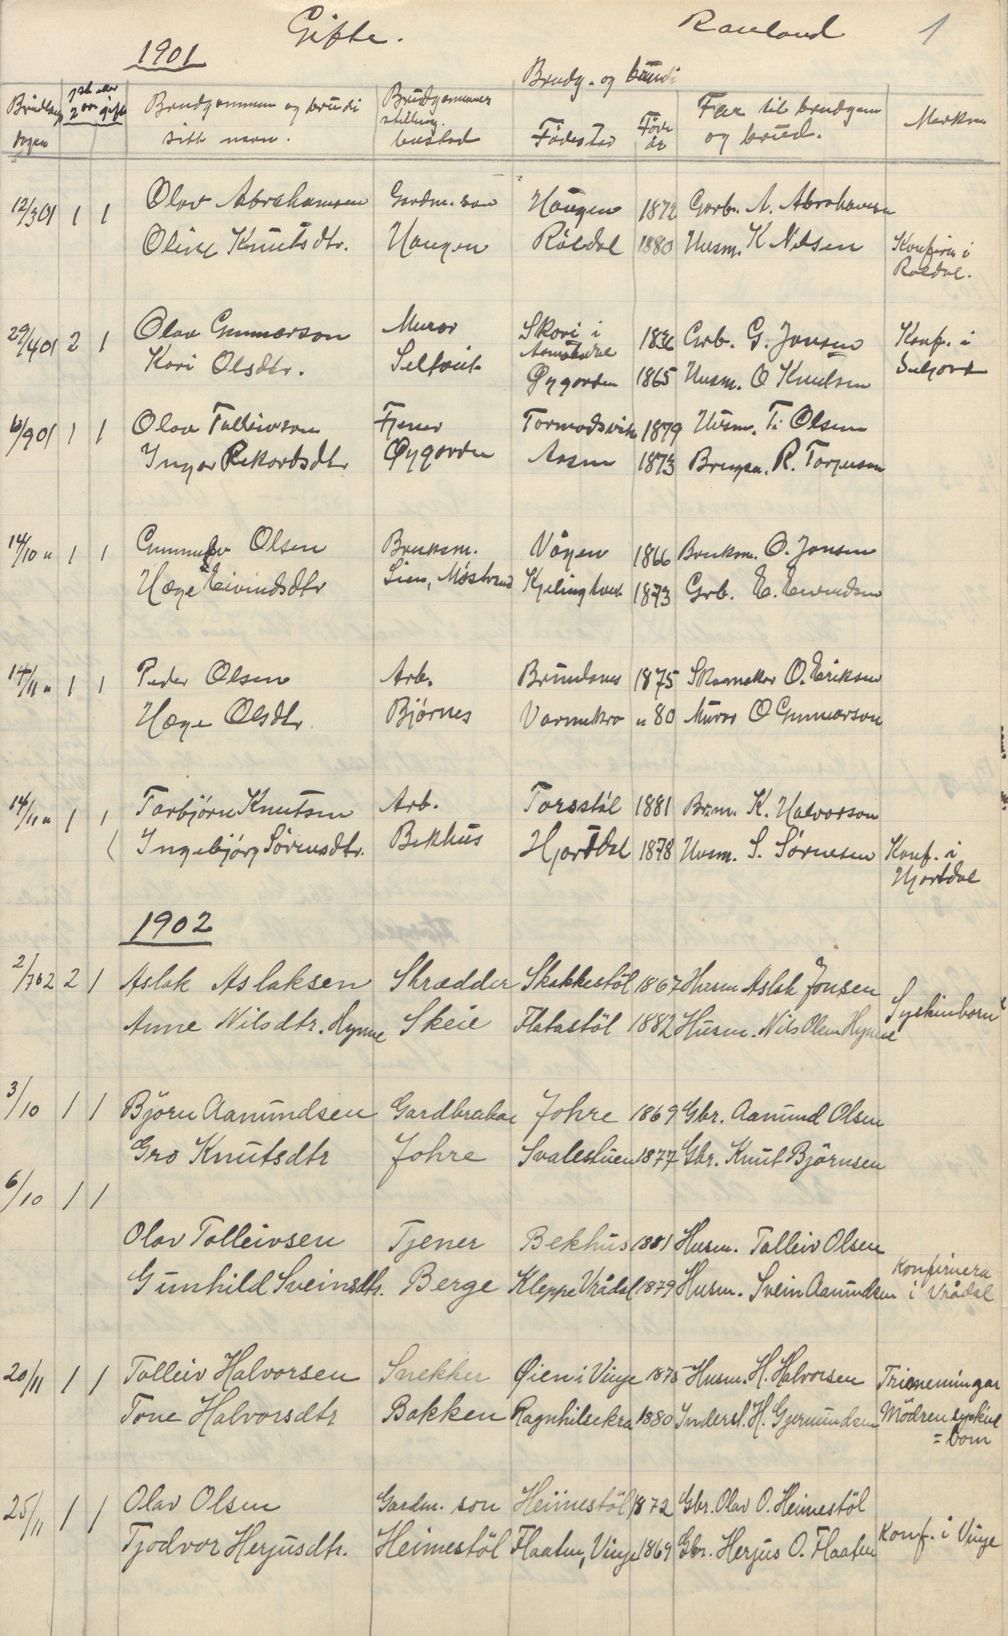 Gifte. Rauland 1
1901
Brudg. og brudi
Bridlaups dagen 1ste eller 2en gift Brudgommen og brudi sitt navn. Brudgommens stilling. bustad Fødestad Føde år Far til brudgom og brud. Merknad
12/3 01 1 1 Olav Abrahamsen Gardm. son Haugen 1872 Garb. A. Abrahamsen
Olive Knutsdtr. Haugen Röldal 1880 Husm. K Nilsen Konfirm i Röldal.
29/4 01 2 1 Olav Gunnarson Murar Skori i 1836 Grb. G. Jonsen Konf. i
Kari Olsdtr. Seltveit Øygarden 1865 Husm. O Knutsen Seljord
6/9 01 1 1 Olav Tolleivson Tjener Tormodsvik 1879 Husm. T. Olsen
Inger Rekardsdtr Øygarden Aasen 1873 Brugsm. R. Torjusen
14/10 " 1 1 Gunnulv Olsen Bruksm. Vågen 1866 Bruksm. O. Jonsen
Hæge Eivindsdtr Lien, Møstrand Kjelingtveit 1873 Grb. E. Eivindsen
14/11 " 1 1 Peder Olsen Arb. Brunlanes 1875 Skomaker O. Eriksen
Hæge Olsdtr Bjørnes Varmekro " 80 Murar O Gunnarson
14/11 " 1 1 Torbjörn Knutsen Arb. Torsstöl 1881 Br.m. K. Halvorson
( Ingebjörg Sörensdtr. Bekhus Hjortdal 1878 Husm. S. Sörnesen Konf. i Hjortdal
1902
2/7 02 2 1 Aslak Aslaksen Skrædder Skakkestöl 1867 Husm Aslak Jonsen
Anne Nilsdtr. Hynne Skeie Flatastöl 1882 Husm. Nils Olsen Hynne Syskinborn
3/10 1 1 Björn Aanundsen Gardbrukar Johre 1869 Gbr. Aanund Olsen
Gro Knutsdtr Johre Svalestuen 1877 Gbr. Knut Björnsen
6/10 1 1
Olav Tolleivsen Tjener Bekhus 1881 Husm. Tolleiv Olsen
Gunhild Sveinsdtr. Berge Kleppe Vrådal 1879 Husm. Svein Aanundsen Konfirmera i Vrådal
20/11 1 1 Tolleiv Halvorsen Snekker Øien i Vinje 1875 Husm. H. Halvorsen Trimeningar
Tone Halvorsdtr Bakken Ragnhildekra 1880 Inderst. H. Gjermundsen Mödren syskin = born
25/11 1 1 Olav Olsen Gardm. son Heimestöl 1872 Gbr. Olav O. Heimestöl
Tjodvor Herjusdtr. Heimestöl Flaaten, Vinje 1869 Gbr. Herjus O. Flaaten Konf. i Vinje